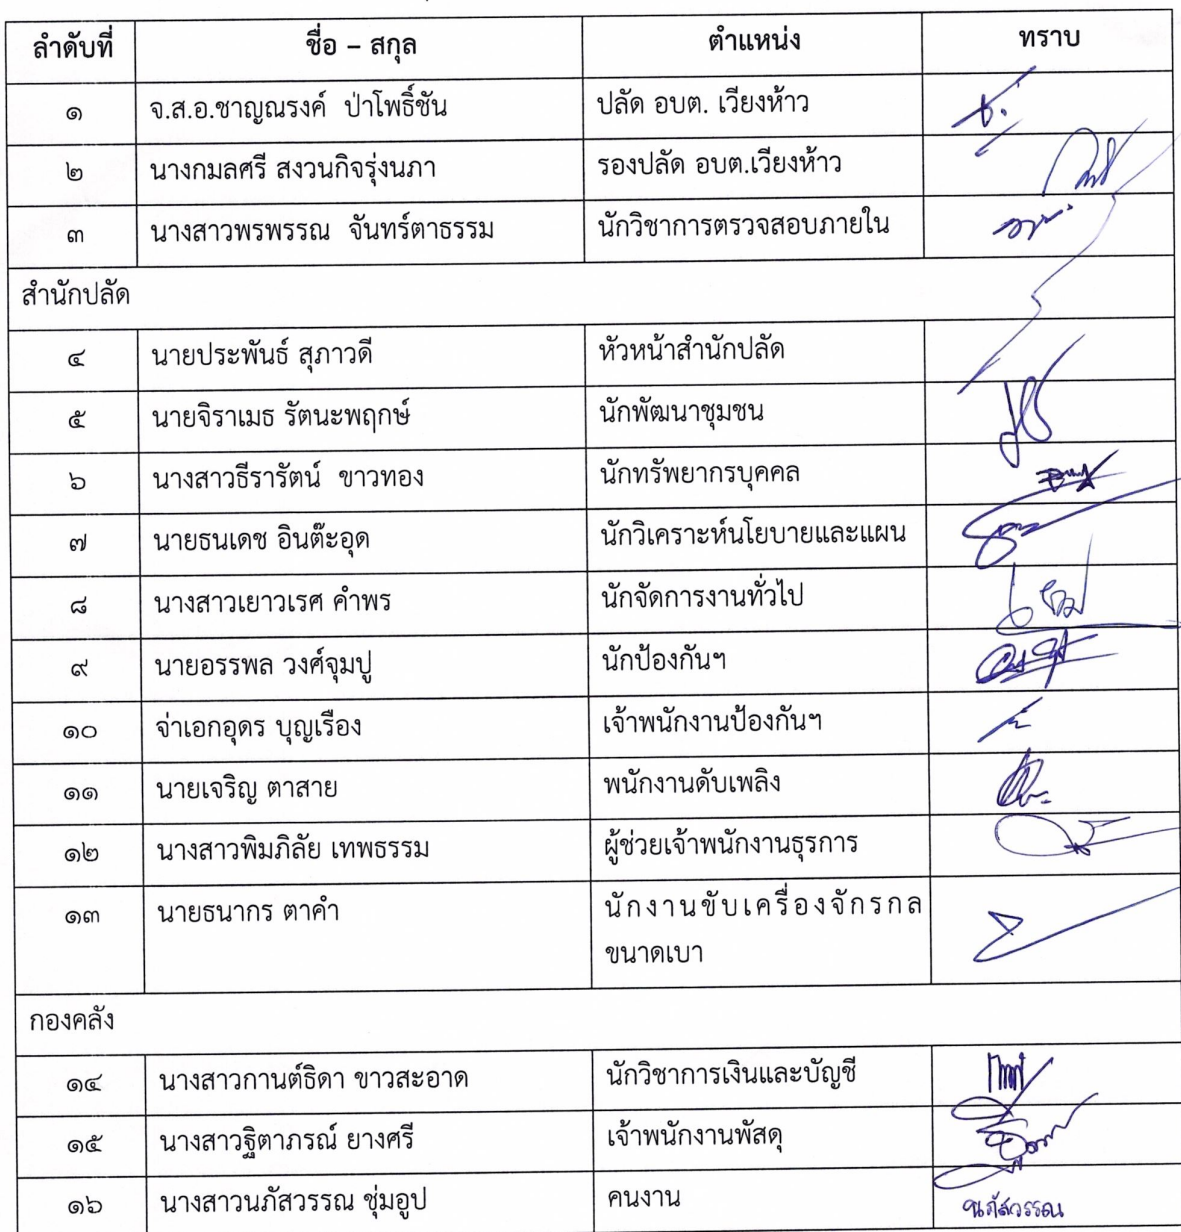 ลำดับที่ ชื่อ – สกุล ตำแหน่ง ทราบ
๑ จ.ส.อ.ชาญณรงค์ ป่าโพธิ์ชัน ปลัด อบต. เวียงห้าว
๒ นางกมลศรี สงวนกิจรุ่งนภา รองปลัด อบต.เวียงห้าว
๓ นางสาวพรพรรณ จันทร์ตาธรรม นักวิชาการตรวจสอบภายใน
สำนักปลัด
๔ นายประพันธ์ สุภาวดี หัวหน้าสำนักปลัด
๕ นายจิราเมธ รัตนะพฤกษ์ นักพัฒนาชุมชน
๖ นางสาวธีรารัตน์ ขาวทอง นักทรัพยากรบุคคล
๗ นายธนเดช อินต๊ะอุด นักวิเคราะห์นโยบายและแผน
๘ นางสาวเยาวเรศ คำพร นักจัดการงานทั่วไป
๙ นายอรรพล วงศ์จุมปู นักป้องกันฯ
๑๐ จ่าเอกอุดร บุญเรือง เจ้าพนักงานป้องกันฯ
๑๑ นายเจริญ ตาสาย พนักงานดับเพลิง
๑๒ นางสาวพิมภิลัย เทพธรรม ผู้ช่วยเจ้าพนักงานธุรการ
๑๓ นายธนากร ตาคำ นักงานขับเครื่องจักรกล
ขนาดเบา
กองคลัง
๑๔ นางสาวกานต์ธิดา ขาวสะอาด นักวิชาการเงินและบัญชี
๑๕ นางสาวฐิตาภรณ์ ยางศรี เจ้าพนักงานพัสดุ
๑๖ นางสาวนภัสวรรณ ชุ่มอูป คนงาน นภัสวรรณ